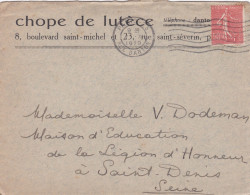 chope de lutèce
8, boulevard saint-michel et 25, rue saint-séverin, p
Mademoiselle V. Dodeman
Maison d'Education
de la Légion d'Honneur
à Saint-Denis
Seine